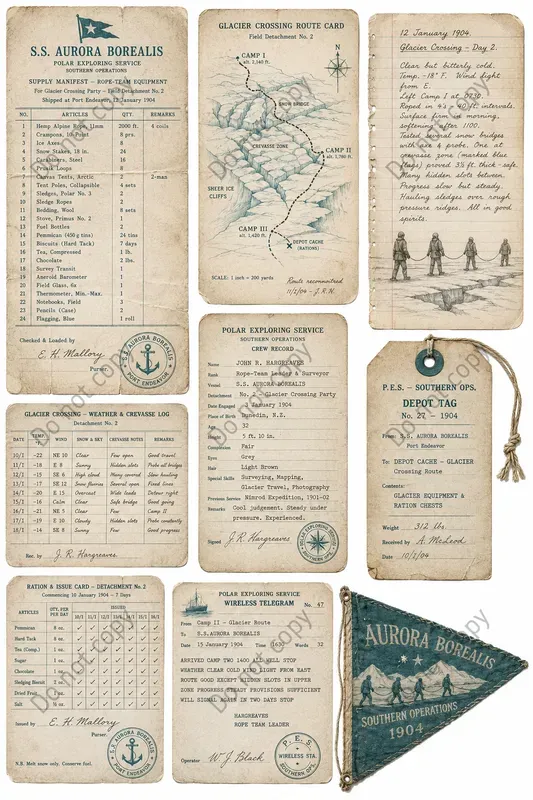 S.S. AURORA BOREALIS
POLAR EXPLORING SERVICE
SOUTHERN OPERATIONS
SUPPLY MANIFEST – ROPE-TEAM EQUIPMENT
For Glacier Crossing Party – Field Detachment No. 2
Shipped at Port Endeavor, 12 January 1904
NO. ARTICLES QTY. REMARKS
1 Hemp Alpine Rope, 11mm 2000 ft. 4 coils
2 Crampons, 10-Point 8 prs.
3 Ice Axes 8
4 Snow Stakes, 18 in. 24
5 Carabiners, Steel 16
6 Prusik Loops 8
7 Canvas Tents, Arctic 2-man
8 Tent Poles, Collapsible 4 sets
9 Sledges, Polar No. 3 2
10 Sledge Ropes 2
11 Bedding, Wool 8 sets
12 Stove, Primus No. 1 1
13 Fuel Bottles 2
14 Pemmican (450 g tins) 24 tins
15 Biscuits (Hard Tack) 7 days
16 Tea, Compressed 1 lb.
17 Chocolate 2 lbs.
18 Survey Transit 1
19 Aneroid Barometer 1
20 Field Glass, 6x 1
21 Thermometer, Min.-Max. 1
22 Notebooks, Field 3
23 Pencils (Case) 2
24 Flagging, Blue 1 roll
Checked & Loaded by
E. H. Mallory
Purser.
S.S. AURORA BOREALIS
PORT ENDEAVOR
GLACIER CROSSING ROUTE CARD
Field Detachment No. 2
N
CAMP I
alt. 2,140 ft.
SNOW BRIDGE
CREVASSE ZONE
CAMP II
alt. 1,780 ft.
SHEER ICE
CLIFFS
CAMP III
alt. 1,420 ft.
DEPOT CACHE
(RATIONS)
SCALE: 1 inch = 200 yards
Route reconnoitred
11/1/04 – J.R.H.
12 January 1904.
Glacier Crossing – Day 2.
Clear but bitterly cold.
Temp. -18° F. Wind light
from E.
Left Camp I at 0730.
Roped in 4's – 40 ft. intervals.
Surface firm in morning,
softening after 1100.
Tested several snow bridges
with axe & probe. One at
crevasse zone (marked blue
flags) proved 3½ ft. thick – safe.
Many hidden slots between.
Progress slow but steady.
Hauling sledges over rough
pressure ridges. All in good
spirits.
POLAR EXPLORING SERVICE
SOUTHERN OPERATIONS
CREW RECORD
Name JOHN R. HARGREAVES
Rank Rope-Team Leader & Surveyor
Vessel S.S. AURORA BOREALIS
Detachment No. 2 – Glacier Crossing Party
Date Engaged 3 January 1904
Place of Birth Dunedin, N.Z.
Age 32
Height 5 ft. 10 in.
Complexion Fair
Eyes Grey
Hair Light Brown
Special Skills Surveying, Mapping,
Glacier Travel, Photography
Previous Service Nimrod Expedition, 1901-02
Remarks Cool judgement. Steady under
pressure. Experienced.
Signed J.R. Hargreaves
POLAR EXPLORING SERVICE
SOUTHERN OPERATIONS
P.E.S. – SOUTHERN OPS.
DEPOT TAG
No. 27 – 1904
From: S.S. AURORA BOREALIS
Port Endeavor
To: DEPOT CACHE – GLACIER
Crossing Route
Contents:
GLACIER EQUIPMENT &
RATION CHESTS
Weight 312 lbs.
Received by A. McLeod
Date 10/1/04
GLACIER CROSSING – WEATHER & CREVASSE LOG
Detachment No. 2
DATE TEMP. °F WIND SNOW & SKY CREVASSE NOTES REMARKS
10/1 -22 NE 10 Clear Few open Good travel
11/1 -18 E 8 Sunny Hidden slots Probe all bridges
12/1 -15 SE 6 High cloud Many covered Slow hauling
13/1 -17 SE 12 Snow flurries Several open Fixed lines
14/1 -20 E 15 Overcast Wide leads Detour right
15/1 -16 Calm Clear Safe bridge Good going
16/1 -21 NE 5 Clear Few Camp II
17/1 -19 E 10 Cloudy Hidden slots Probe constantly
18/1 -14 SE 8 Sunny Few Good progress
Rec. by J.R. Hargreaves
RATION & ISSUE CARD – DETACHMENT No. 2
Commencing 10 January 1904 – 7 Days
ARTICLES QTY. PER PER DAY ISSUED
10/1 11/1 12/1 13/1 14/1 15/1 16/1
Pemmican 8 oz. ✓ ✓ ✓ ✓ ✓ ✓ ✓
Hard Tack 8 oz. ✓ ✓ ✓ ✓ ✓ ✓ ✓
Tea (Comp.) ✓ ✓ ✓ ✓ ✓ ✓ ✓
Sugar 1 oz. ✓ ✓ ✓ ✓ ✓ ✓ ✓
Chocolate ✓ ✓ ✓ ✓ ✓ ✓ ✓
Sledging Biscuit ✓ ✓ ✓ ✓ ✓ ✓ ✓
Dried Fruit ✓ ✓ ✓ ✓ ✓ ✓ ✓
Salt ⅛ oz. ✓ ✓ ✓ ✓ ✓ ✓ ✓
Issued by E. H. Mallory
Purser.
N.B. Melt snow only. Conserve fuel.
S.S. AURORA BOREALIS
PORT ENDEAVOR
POLAR EXPLORING SERVICE
WIRELESS TELEGRAM No. 47
From Camp II – Glacier Route
To S.S.AURORA BOREALIS
Date 15 January 1904 Time 1630 Words 32
ARRIVED CAMP TWO 1400 ALL WELL STOP
WEATHER CLEAR COLD WIND LIGHT FROM EAST
ROUTE GOOD EXCEPT HIDDEN SLOTS IN UPPER
ZONE PROGRESS STEADY PROVISIONS SUFFICIENT
WILL SIGNAL AGAIN IN TWO DAYS STOP
HARGREAVES
ROPE TEAM LEADER
Operator W.J. Black
P.E.S.
WIRELESS STA.
SOUTHERN OPS.
AURORA BOREALIS
SOUTHERN OPERATIONS
1904
Do not copy
Do not copy
Do not copy
Do not copy
Do not copy
Do not copy
Do not copy
Do not copy
Do not copy